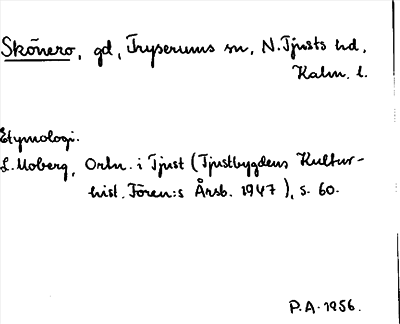 Skönero, gd, Tryserums sn, N. Tjusts hd,
Kalm. l.
Etymologi.
L. Moberg, Ortn. i Tjust (Tjustbygdens Kultur-
hist. Fören:s Årsb. 1947), s. 60.
P.A. 1956.